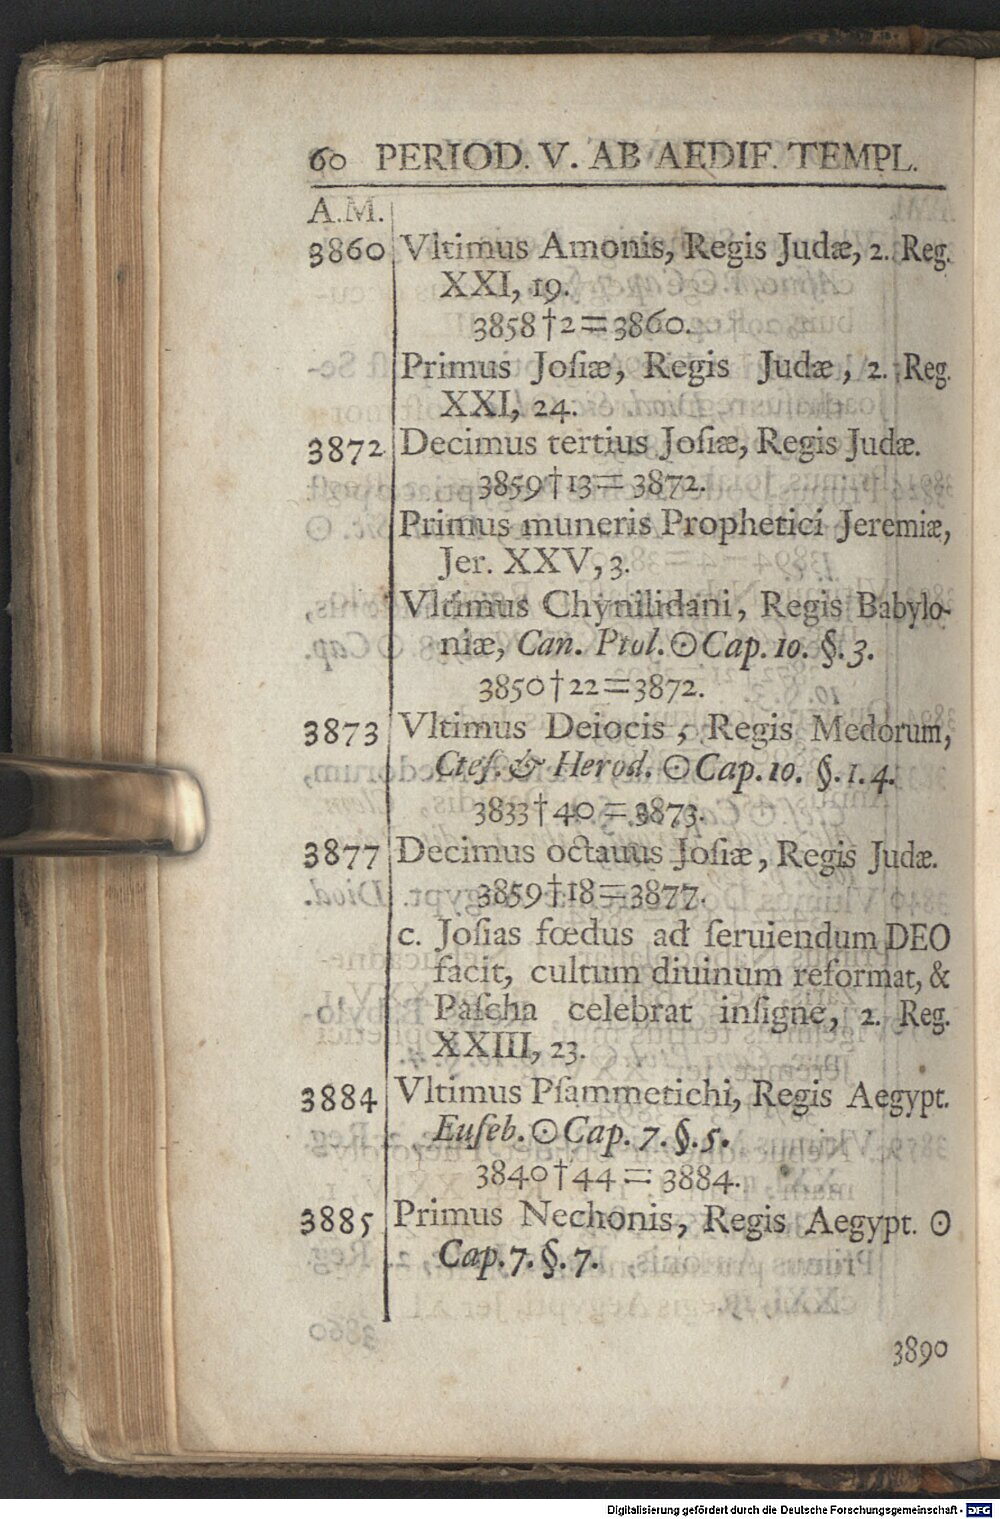 60 PERIOD. V. AB AEDIF. TEMPL.
A.M.
3860 Vltimus Amonis, Regis Judæ, 2. Reg.
XXI, 19.
3858†2=3860.
Primus Joſiæ, Regis Judæ, 2. Reg.
XXI, 24.
3872 Decimus tertius Joſiæ, Regis Judæ.
3859†13=3872.
Primus muneris Prophetici Jeremiæ,
Jer. XXV, 3.
Vltimus Chynilidani, Regis Babylo-
niæ, Can. Ptol. ☉ Cap. 10. §. 3.
3850†22=3872.
3873 Vltimus Deiocis, Regis Medorum,
Cteſ. & Herod. ☉ Cap. 10. §. 1. 4.
3833†40=3873.
3877 Decimus octauus Joſiæ, Regis Judæ.
3859†18=3877.
c. Joſias fœdus ad ſeruiendum DEO
facit, cultum diuinum reformat, &
Paſcha celebrat inſigne, 2. Reg.
XXIII, 23.
3884 Vltimus Pſammetichi, Regis Aegypt.
Euſeb. ☉ Cap. 7. §. 5.
3840†44=3884.
3885 Primus Nechonis, Regis Aegypt. ☉
Cap. 7. §. 7.
3890
Digitalisierung gefördert durch die Deutsche Forschungsgemeinschaft - DFG